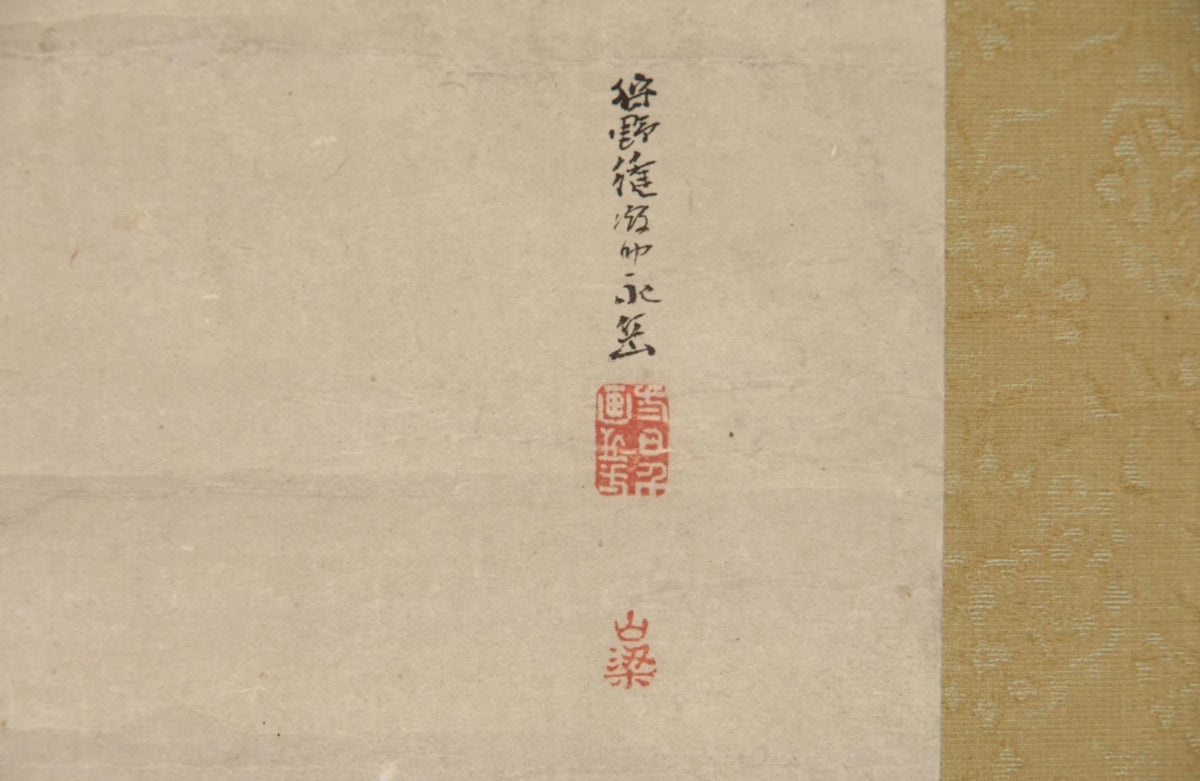 狩野縫殿助永岳
山梁